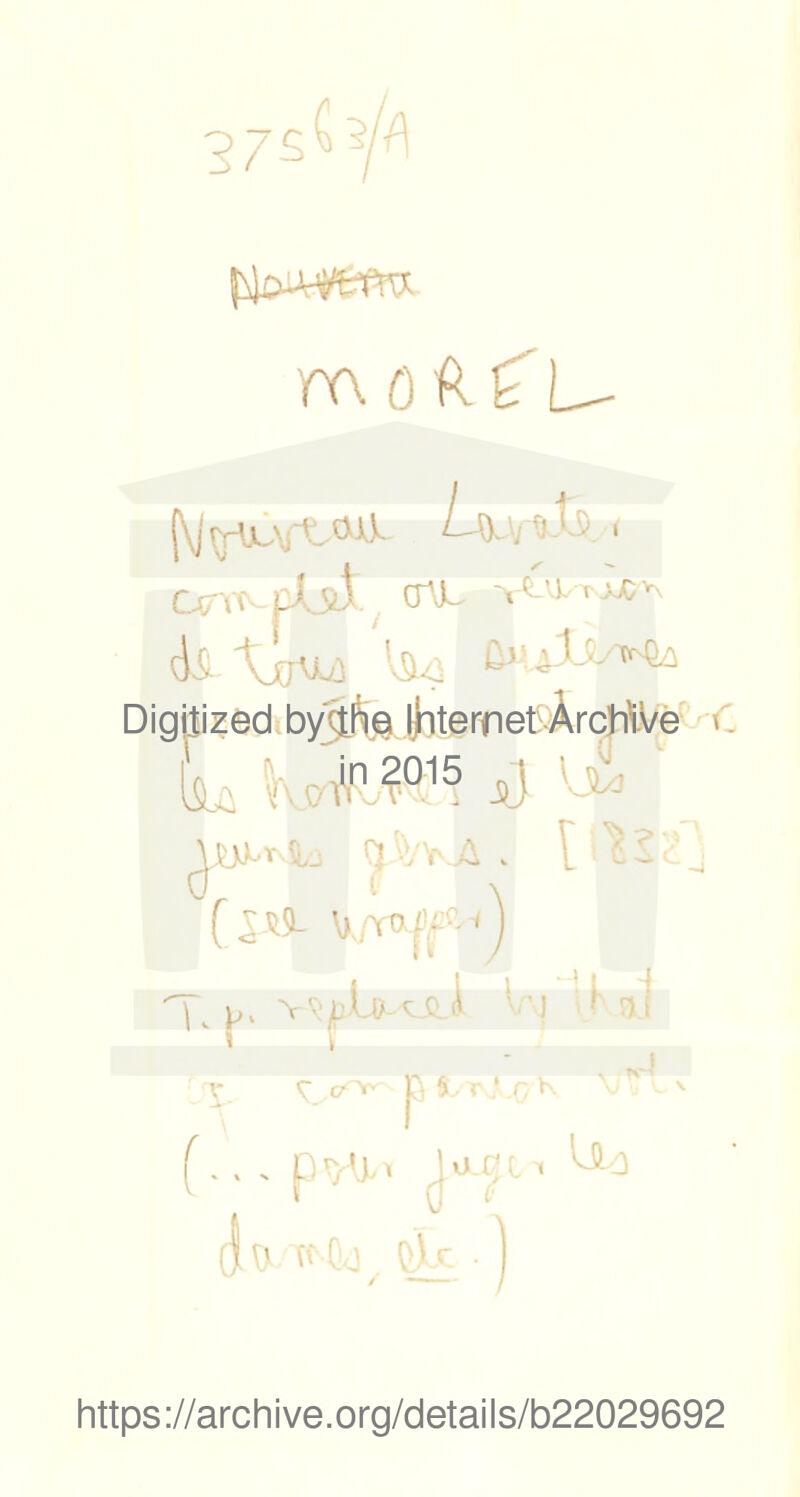 37563/A
Nouveau
MOREL
Nouveau Lavater
complet, ou réunion
de tous les systèmes
pour étudier et juger
Digitized by the Internet Archive
in 2015
les hommes et les
jeunes gens. [1838]
(see wrapper)
T.p. replaced by that
of companion vol.
(... pour juger les
dames, etc.)
https://archive.org/details/b22029692